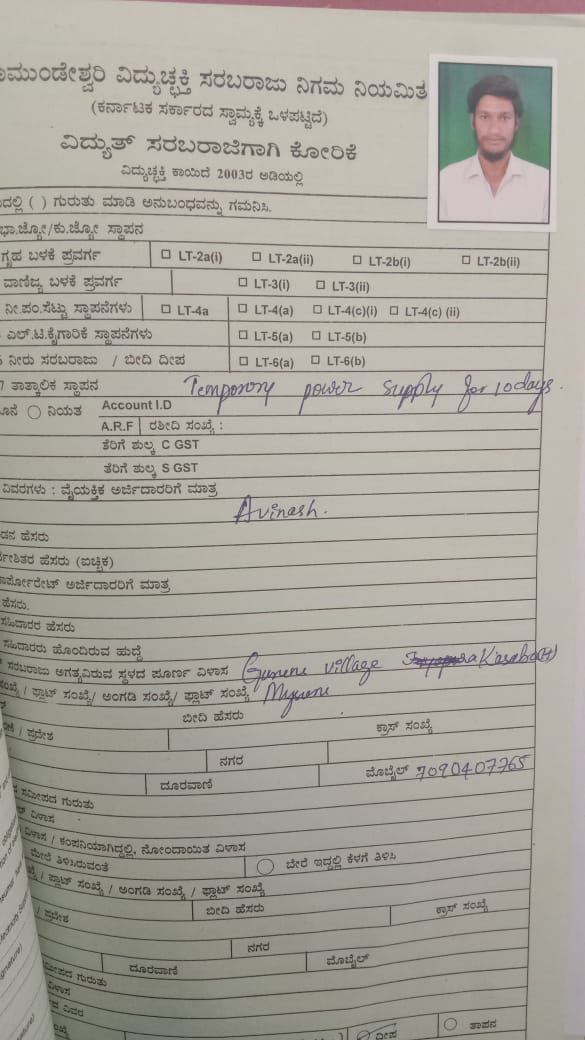 ವಿದ್ಯುಚ್ಛಕ್ತಿ ಸರಬರಾಜು ನಿಗಮ ನಿಯಮಿತ
(ಕರ್ನಾಟಕ ಸರ್ಕಾರದ ಸ್ವಾಮ್ಯಕ್ಕೆ ಒಳಪಟ್ಟಿದೆ)
ವಿದ್ಯುತ್ ಸರಬರಾಜಿಗಾಗಿ ಕೋರಿಕೆ
ವಿದ್ಯುಚ್ಛಕ್ತಿ ಕಾಯಿದೆ 2003ರ ಅಡಿಯಲ್ಲಿ
( ) ಗುರುತು ಮಾಡಿ ಅನುಬಂಧವನ್ನು ಗಮನಿಸಿ.
ಭಾ.ಜ್ಯೋ/ಕು.ಜ್ಯೋ ಸ್ಥಾಪನ
ಗೃಹ ಬಳಕೆ ಪ್ರವರ್ಗ ☐ LT-2a(i) ☐ LT-2a(ii) ☐ LT-2b(i) ☐ LT-2b(ii)
ವಾಣಿಜ್ಯ ಬಳಕೆ ಪ್ರವರ್ಗ ☐ LT-3(i) ☐ LT-3(ii)
ನೀ.ಪಂ.ಸೆಟ್ಟು ಸ್ಥಾಪನೆಗಳು ☐ LT-4a ☐ LT-4(a) ☐ LT-4(c)(i) ☐ LT-4(c) (ii)
ಎಲ್.ಟಿ.ಕೈಗಾರಿಕೆ ಸ್ಥಾಪನೆಗಳು ☐ LT-5(a) ☐ LT-5(b)
ನೀರು ಸರಬರಾಜು / ಬೀದಿ ದೀಪ ☐ LT-6(a) ☐ LT-6(b)
7 ತಾತ್ಕಾಲಿಕ ಸ್ಥಾಪನ Temporory power supply for 10 days.
ನಿಯತ Account I.D
A.R.F ರಶೀದಿ ಸಂಖ್ಯೆ :
ತೆರಿಗೆ ಶುಲ್ಕ C GST
ತೆರಿಗೆ ಶುಲ್ಕ S GST
ವಿವರಗಳು : ವೈಯಕ್ತಿಕ ಅರ್ಜಿದಾರರಿಗೆ ಮಾತ್ರ
Avinash.
ಹೆಸರು
ಹೆಸರು (ಐಚ್ಛಿಕ)
ಅರ್ಜಿದಾರರಿಗೆ ಮಾತ್ರ
ಹೆಸರು.
ಸಹಿದಾರರ ಹೆಸರು
ಸಹಿದಾರರು ಹೊಂದಿರುವ ಹುದ್ದೆ
ಸರಬರಾಜು ಅಗತ್ಯವಿರುವ ಸ್ಥಳದ ಪೂರ್ಣ ವಿಳಾಸ village Kasaba(H)
/ ಫ್ಲಾಟ್ ಸಂಖ್ಯೆ/ ಅಂಗಡಿ ಸಂಖ್ಯೆ/ ಪ್ಲಾಟ್ ಸಂಖ್ಯೆ
ಬೀದಿ ಹೆಸರು
/ ಪ್ರದೇಶ ಕ್ರಾಸ್ ಸಂಖ್ಯೆ
ನಗರ
ದೂರವಾಣಿ ಮೊಬೈಲ್ 7090407765
ಸಮೀಪದ ಗುರುತು
ವಿಳಾಸ
ವಿಳಾಸ / ಕಂಪನಿಯಾಗಿದ್ದಲ್ಲಿ, ನೋಂದಾಯಿತ ವಿಳಾಸ
ಮೇಲೆ ತಿಳಿಸಿರುವಂತೆ ಬೇರೆ ಇದ್ದಲ್ಲಿ ಕೆಳಗೆ ತಿಳಿಸಿ
/ ಫ್ಲಾಟ್ ಸಂಖ್ಯೆ / ಅಂಗಡಿ ಸಂಖ್ಯೆ / ಪ್ಲಾಟ್ ಸಂಖ್ಯೆ
ಬೀದಿ ಹೆಸರು
/ ಪ್ರದೇಶ ಕ್ರಾಸ್ ಸಂಖ್ಯೆ
ನಗರ
ದೂರವಾಣಿ ಮೊಬೈಲ್
ಗುರುತು
ವಿಳಾಸ
ವಿವರ
ದೀಪ ತಾಪನ